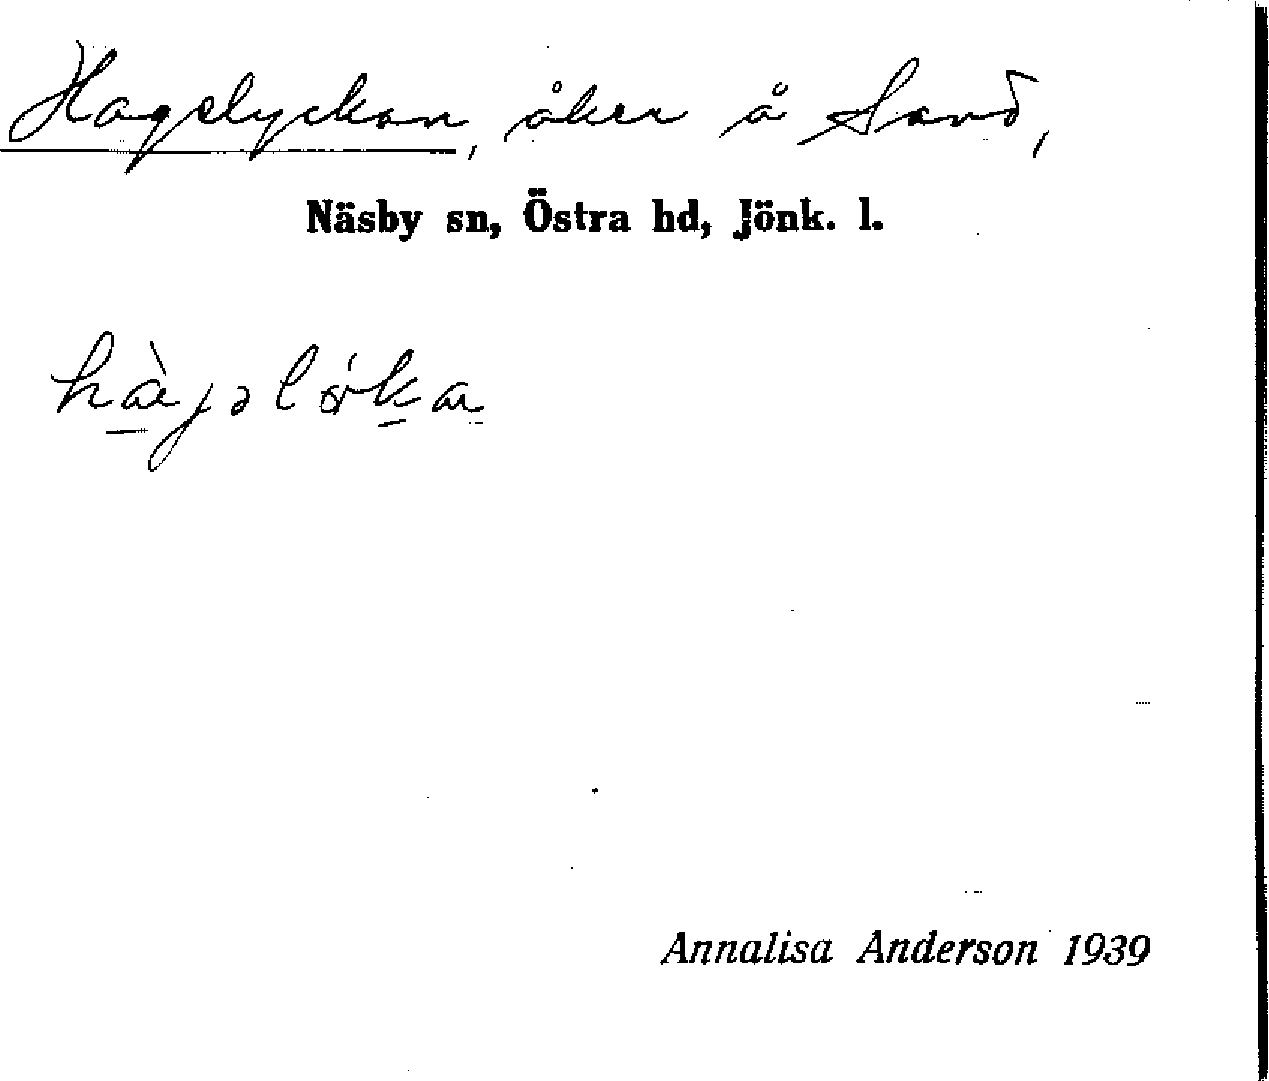 Hagslyckan, åker å Sand,
Näsby sn, Östra hd, Jönk. l.
Annalisa Anderson 1939